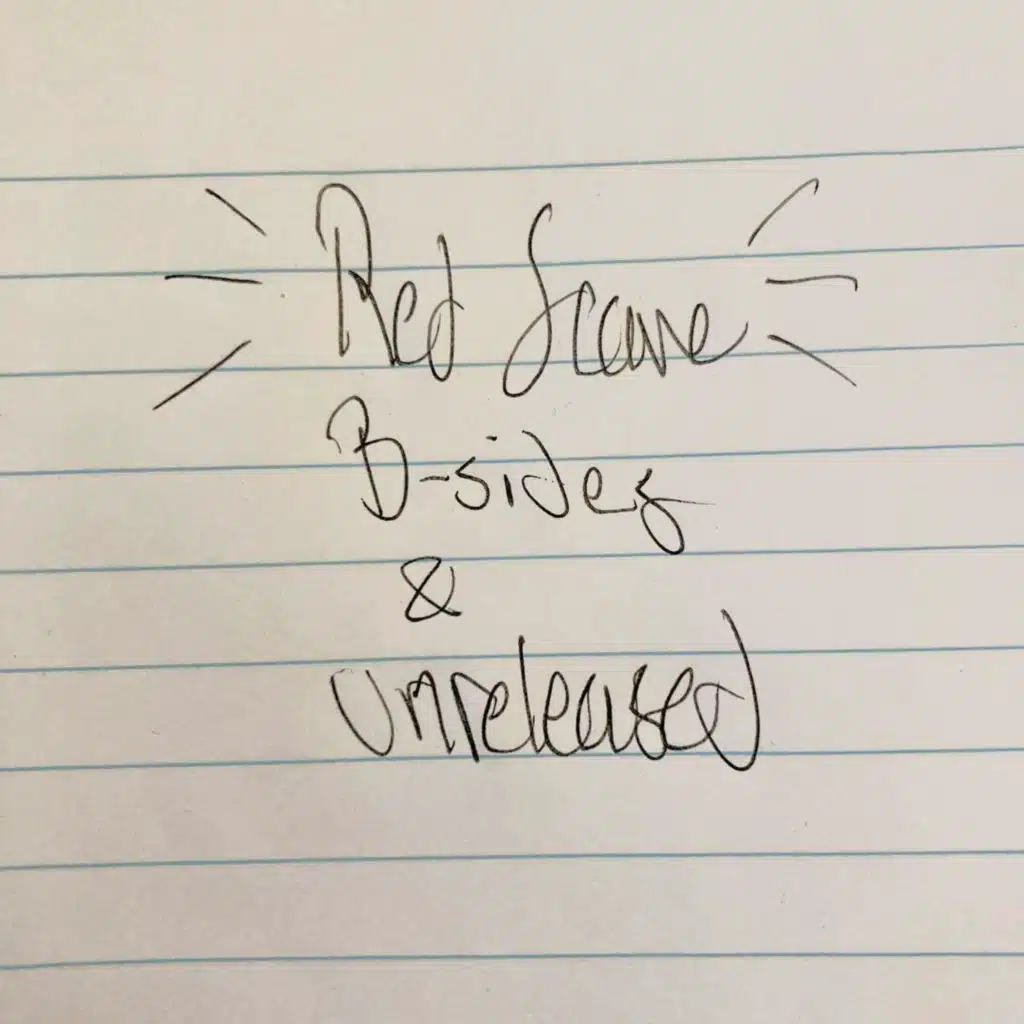 Red Scare
B-sides
&
Unreleased